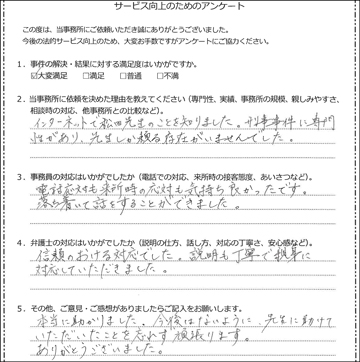 サービス向上のためのアンケート
この度は、当事務所にご依頼いただき誠にありがとうございました。
今後の法的サービス向上のため、大変お手数ですがアンケートにご協力ください。
1．事件の解決・結果に対する満足度はいかがですか。
☑大変満足　□満足　□普通　□不満
2．当事務所に依頼を決めた理由を教えてください（専門性、実績、事務所の規模、親しみやすさ、
相談時の対応、他事務所との比較など）。
インターネットで松田先生のことを知りました。刑事事件に専門
性があり、先生しか頼る存在がいませんでした。
3．事務員の対応はいかがでしたか（電話での対応、来所時の接客態度、あいさつなど）。
電話応対も来所時の応対も気持ち良かったです。
落ち着いて話をすることができました。
4．弁護士の対応はいかがでしたか（説明の仕方、話し方、対応の丁寧さ、安心感など）。
信頼のおける対応でした。説明も丁寧で親身に
対応していただきました。
5．その他、ご意見・ご感想がありましたらご記入をお願いします。
本当に助かりました。今後はないように、先生に助けて
いただいたことを忘れず頑張ります。
ありがとうございました。